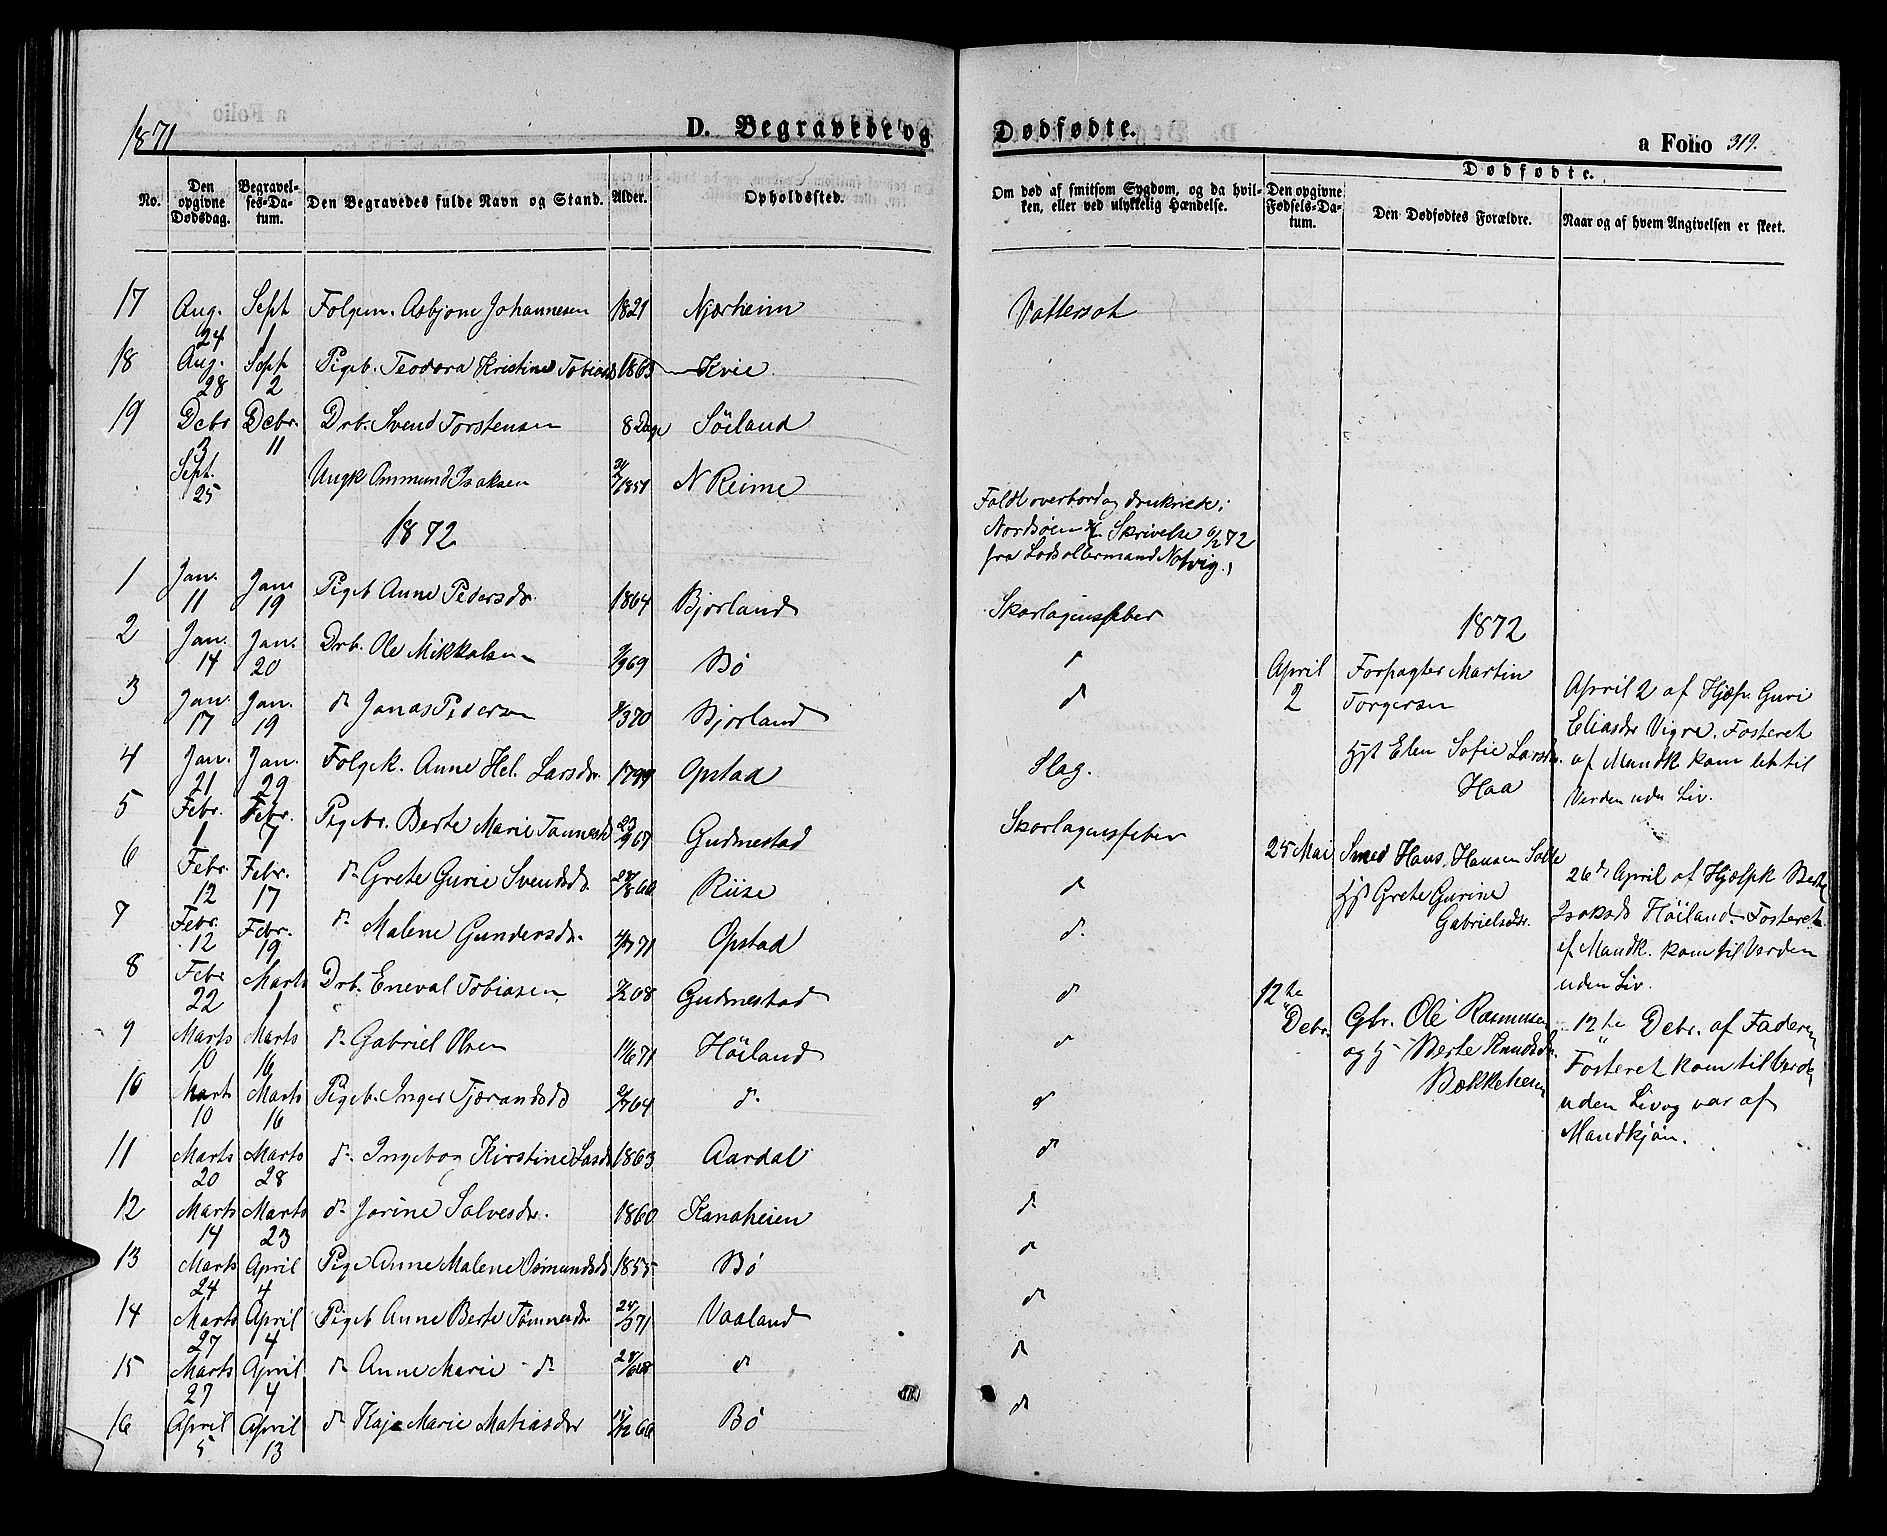 1871
D. Begravede og Dødfødte.
a Folio 319.
No.
Den opgivne Dødsdag.
Begravelses-Datum.
Den Begravedes fulde Navn og Stand.
Alder.
Opholdssted.
Om død af smitsom Sygdom, og da hvilken, eller ved ulykkelig Hændelse.
Dødfødte.
Den opgivne Fødsels-Datum.
Den Dødfødtes Forældre.
Naar og af hvem Angivelsen er skeet.
17 Aug. 24 Sept 1 Folgem. Asbjørn Johannesen 1821 Njærheim Vattersot
18 Aug. 28 Sept 2 Pigeb. Teodora Kristine Tobiasd 1863 Kvie
19 Debr 3 Debr. 11 Drb. Svend Torstensen 8 Dage Söiland
Sept. 25 Ungk Ommund Isaksen 1851 N Reime
Faldt overbord og druknede i
Nordsøen Skrivelse 6/2 72
fra Lodsoldermand
1872
1 Jan. 11 Jan. 19 Pigeb Anne Pedersdr. 1864 Bjorland Skarlagensfeber
2 Jan. 14 Jan. 20 Drb. Ole Mikkalsen 69 Bö d
3 Jan. 17 Jan. 19 d Jonas Pedersen 70 Bjorland d
4 Jan. 21 Jan. 29 Folgek. Anne Hel. Larsdr. 1799 Opstad Slag.
5 Febr. 1 Febr. 7 Pigebr. Berte Marie 67 Gudmestad Skarlagensfeber
6 Febr. 12 Febr. 17 d Grete Gurie Svendsd. 66 Riise d
7 Febr. 12 Febr. 19 d. Malene Gundersdr. 71 Opstad d.
8 Febr 22 Marts 1 Drb. Eneval Tobiasen 68 Gudmestad d
9 Marts 10 Marts 16 d. Gabriel Olsen 71 Höiland d
10 Marts 10 Marts 16 Pigeb. Inger Tjørandsd 64 d. d
11 Marts 20 Marts 28 d. Ingebog Kirstine Lasd 1863 Aardal d
12 Marts 14 Marts 23 d. Jorine Salvesdr. 1860 Kanaheien d.
13 Marts 24 April 4 Pige Anne Malene Osmundsd 1855 Bö d
14 Marts 27 April 4 Pigeb Anne Berte Tønnesdr 71 Vaaland d
15 Marts 27 April 4 d. Anne Marie d. 68 d d
16 April 5 April 13 d. Kaja Marie Matiasdr 66 Bö d
1872
April 2
Forpagter Martin
Torgersen
Hst Elen Sofie Larsdr.
Haa
April 2 af Hjæp. Guri
Eliasdr Vigre. Fosteret
af Mandk kom til
Verden uden Liv.
25 Mai
Smed Hans Hansen
Hst Grete Gurine
Gabrielsdr.
26 April af Hjælpk
Isaksd Höiland. Fosteret
af Mandk. kom til Verden
uden Liv.
12te Debr.
Gbr. Ole Rasmussen
og H Berte Knudsdr.
12te Debr. af Faderen
Fosteret kom til Verden
uden Liv og var af
Mandkjøn.